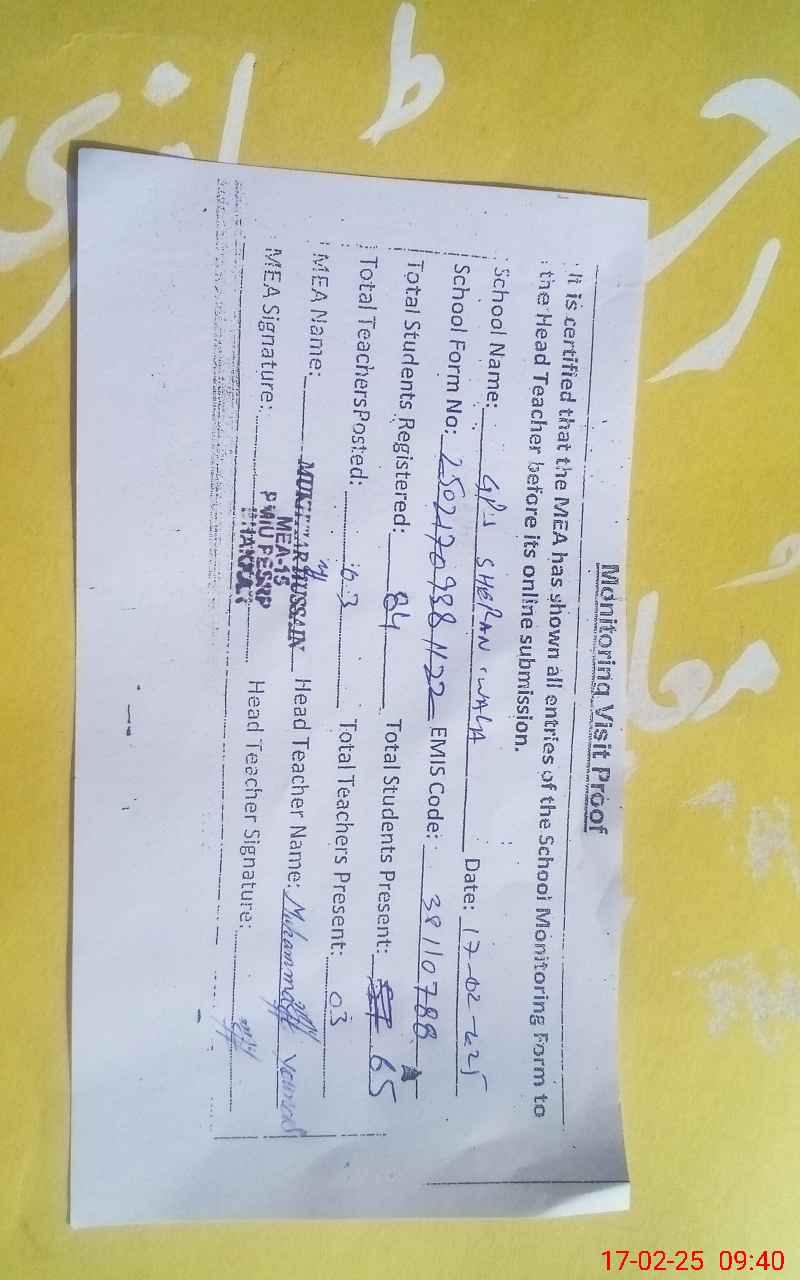 Monitoring Visit Proof
It is certified that the MEA has shown all entries of the School Monitoring Form to
the Head Teacher before its online submission.
School Name: GPS SHERAN WALA Date: 17-02-225
School Form No: 2502170938 1122 EMIS Code: 38110788
Total Students Registered: 84 Total Students Present: 65
Total TeachersPosted: 03 Total Teachers Present: 03
MEA Name: MUKHTAR HUSSAIN Head Teacher Name: Muhammad
MEA-15
MEA Signature: PMIU PESRP Head Teacher Signature:
BHAKKAR
17-02-25 09:40